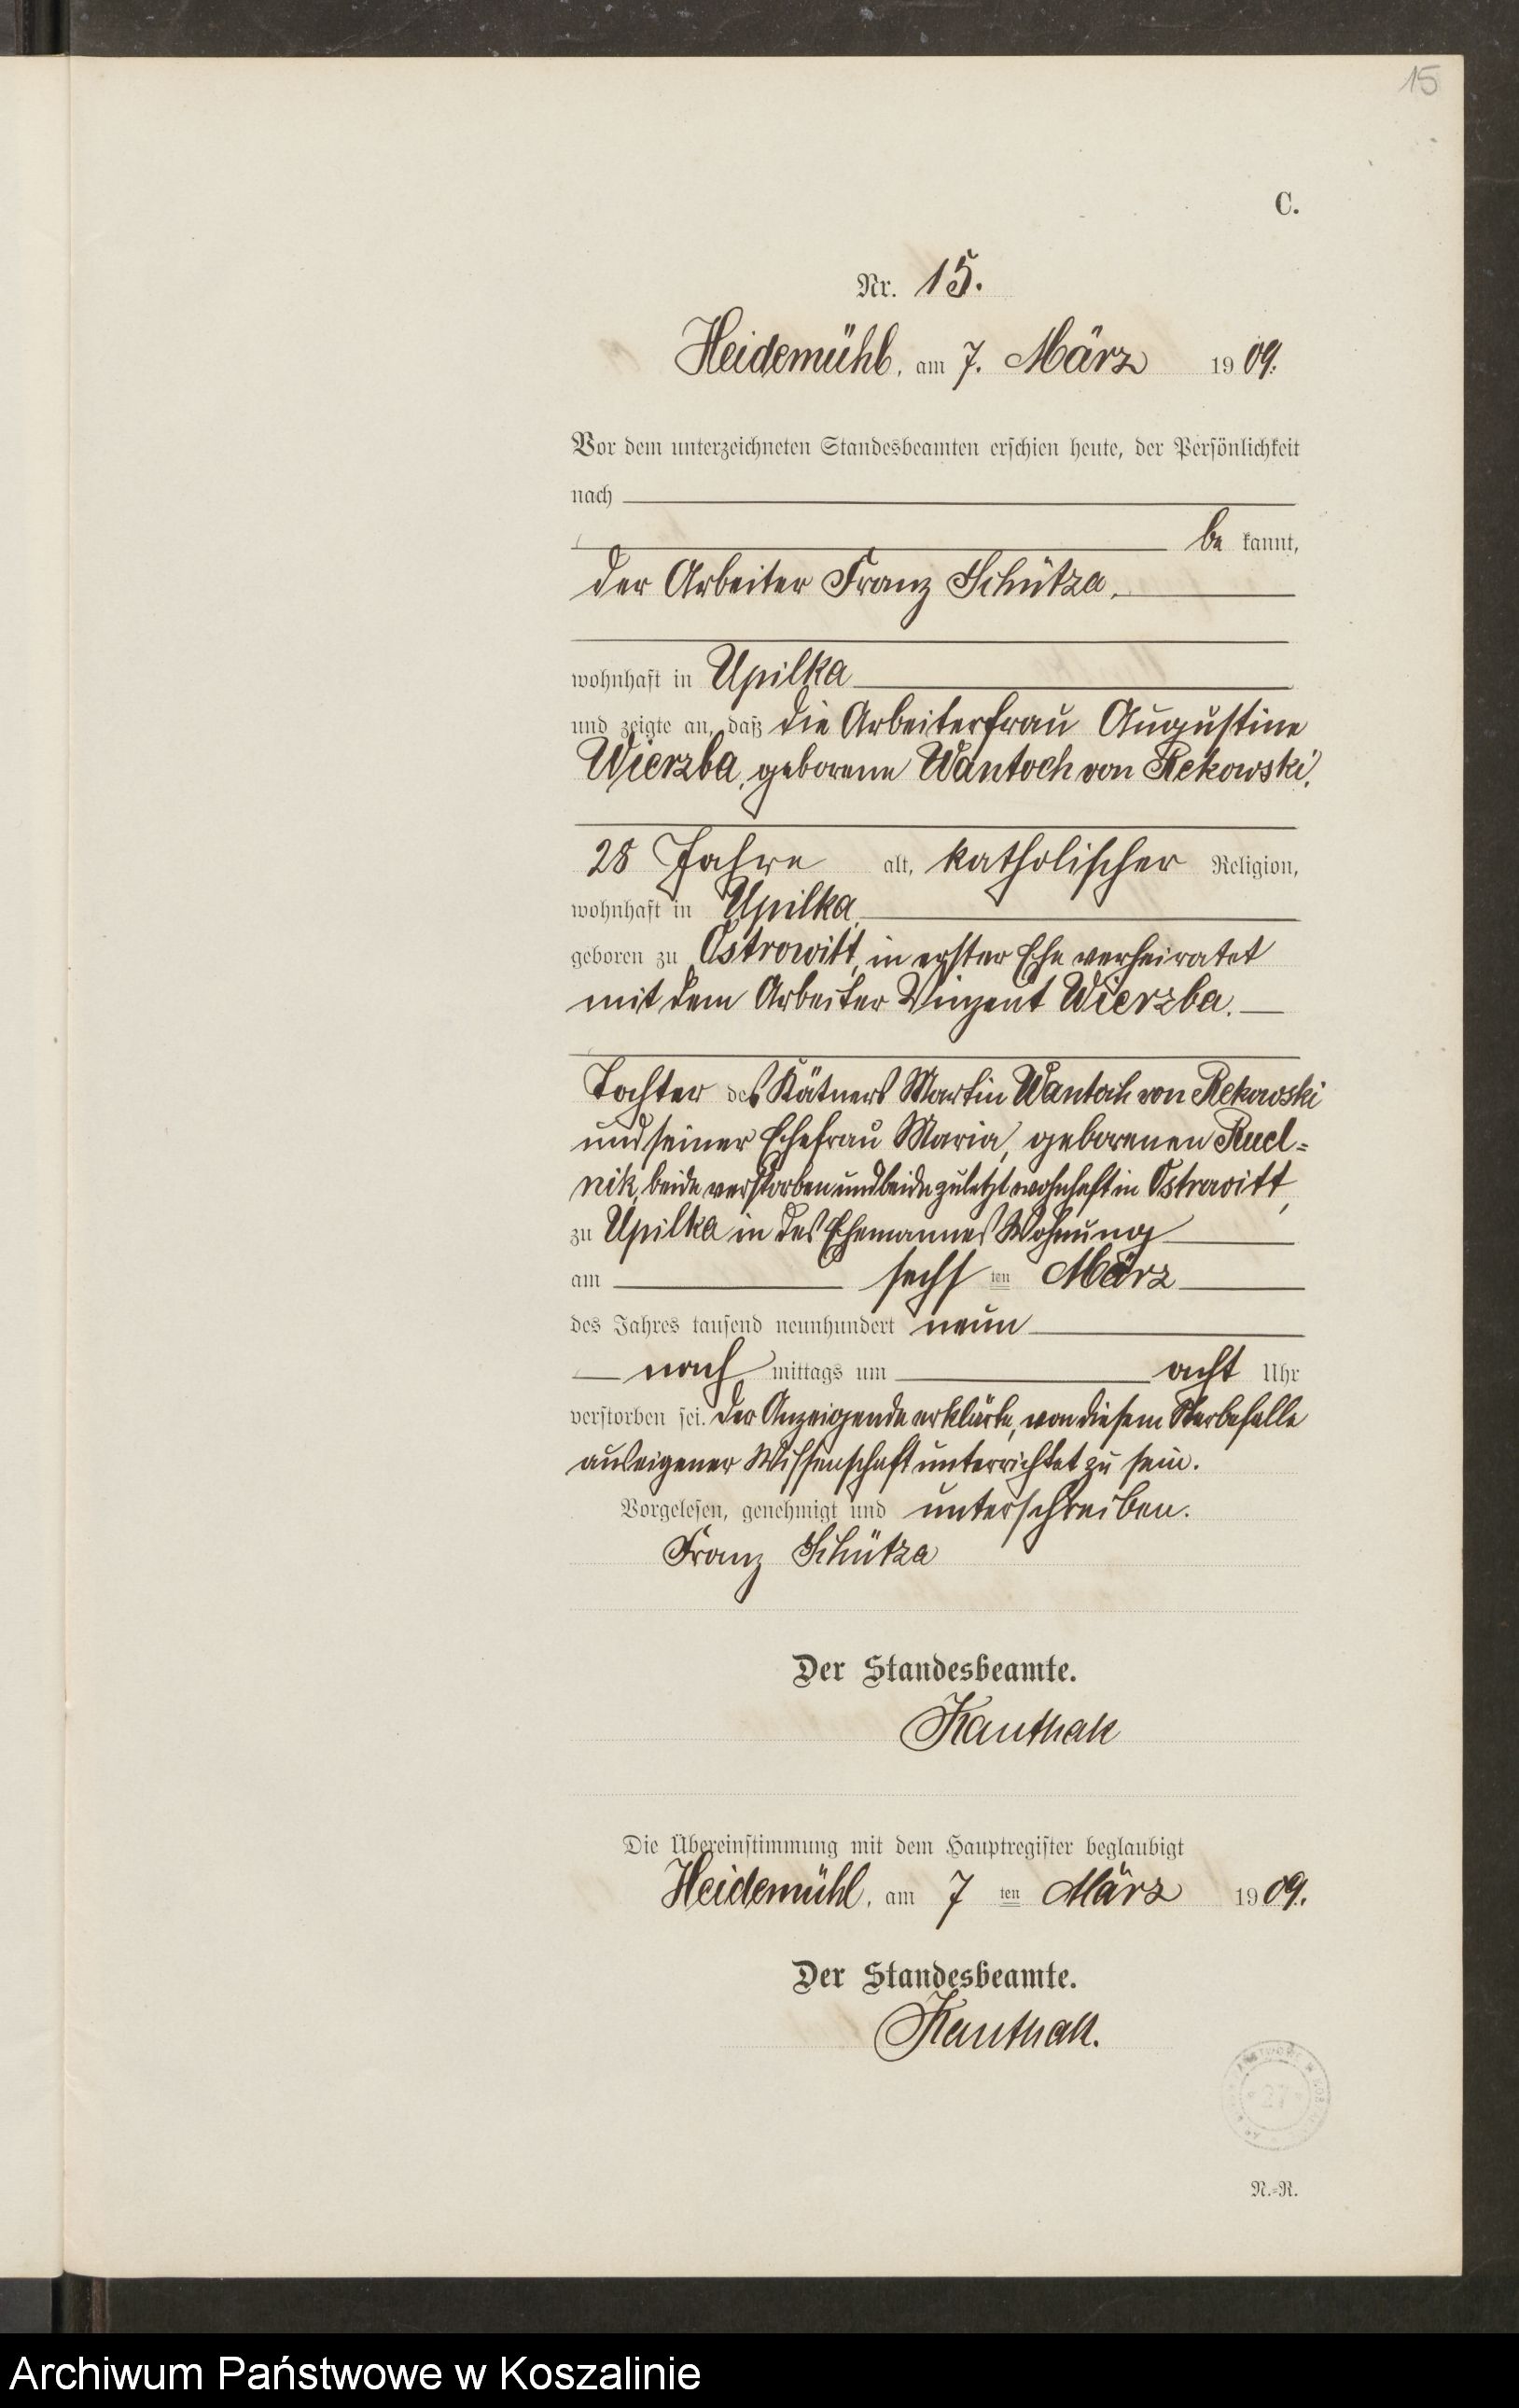 15
C.
Nr. 15.
Heidemühl, am 7. März 1909.
Vor dem unterzeichneten Standesbeamten erschien heute, der Persönlichkeit
nach
be kannt,
der Arbeiter Franz Schütza,
wohnhaft in Upilka
und zeigte an, daß die Arbeiterfrau Augustine
Wierzba, geborene Wantoch von Rekowski,
28 Jahre alt, katholischer Religion,
wohnhaft in Upilka,
geboren zu Ostrowitt, in erster Ehe verheiratet
mit dem Arbeiter Vinzent Wierzba.
Tochter des Kätners Martin Wantoch von Rekowski
und seiner Ehefrau Maria, geborenen Rud=
nik, beide verstorben und beide zuletzt wohnhaft in Ostrowitt,
zu Upilka in des Ehemannes Wohnung
am sechsten März
des Jahres tausend neunhundert neun
nach mittags um acht Uhr
verstorben sei. Der Anzeigende erklärte, von diesem Sterbefalle
aus eigener Wissenschaft unterrichtet zu sein.
Vorgelesen, genehmigt und unterschreiben.
Franz Schütza
Der Standesbeamte.
Kauthak
Die Übereinstimmung mit dem Hauptregister beglaubigt
Heidemühl, am 7 ten März 1909.
Der Standesbeamte.
Kauthak.
27
N.=R.
Archiwum Państwowe w Koszalinie